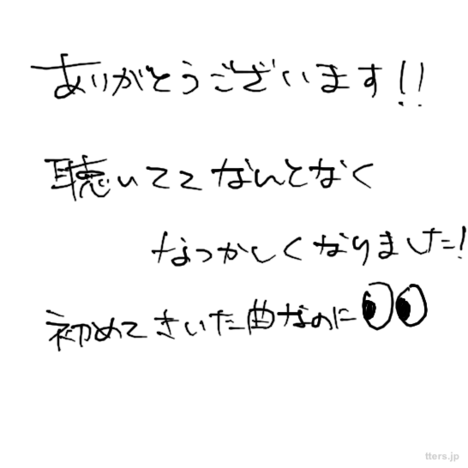 ありがとうございます!!
聴いててなんとなく
なつかしくなりました!
初めてきいた曲なのに👀
tters.jp